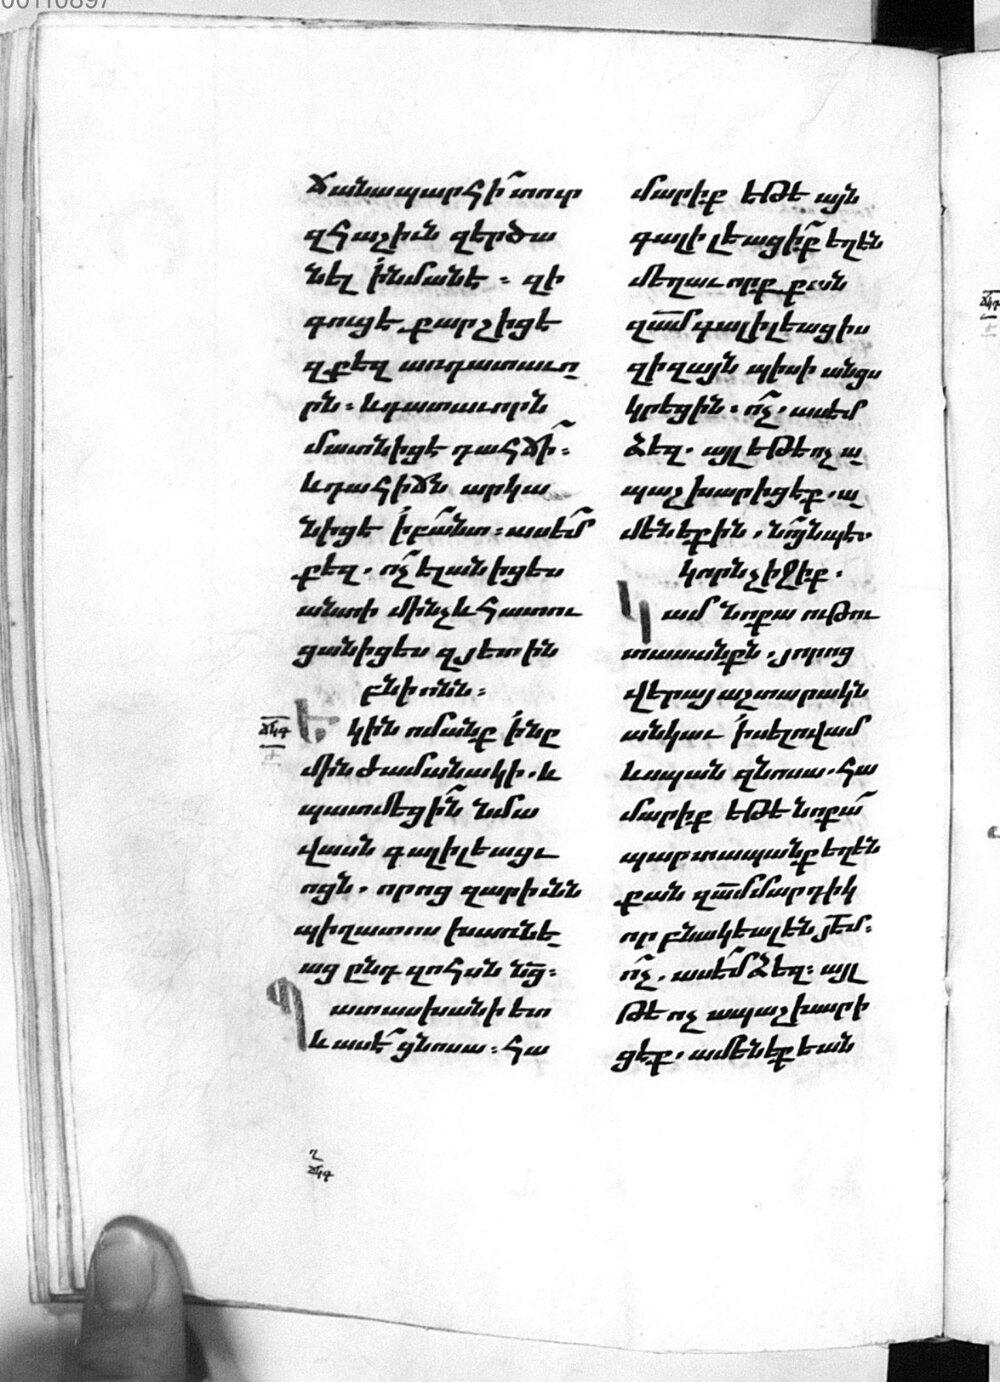 00110897
ճանապարհի՛ տուր
զհաշիւն զերծա
նել ի՛նմանէ ։ զի
գուցե քարշիցե
զքեզ առդատաւո
րն ։ ևդատաւորն
մատնիցէ դահճի՛ ։
ևդահիճն արկա
նիցե ի՛ բանտ ։ ասեմ
քեզ . ո՛չ ելանիցես
անտի մինչևհատու
ցանիցես զյետին
բնիոնն ։
ճկգ
Եկին ոմանք ի՛նը
մին ժամանակի . և
պատմեցի՛ն նմա
վասն գաղիլեացւ
ոցն . որոց զարիւնն
պիղատոս խառնե
աց ընդ զոհսն նց ։
Պատասխանի ետ
և ասե՛ ցնոսա ։ հա
մարիք եթե այն
գալիլեացիք եղեն
մեղաւորք քան
զամ գալիլեացիս
զիզայն պիսի անցս
կրեցին ։ ո՛չ . ասեմ
ձեզ . այլ եթե ոչ ա
պաշխարիցեք . ա
մենեքին . նոյնպես
կորնչիջիք .
Կամ նոքա ութու
տասանքն . յորոց
վերայ աշտարակն
անկաւ ի՛ սելովամ
ևսպան զնոսա . հա
մարիք եթե նոքա՛
պարտապանք եղեն
քան զամ մարդիկ
որ բնակեալեն յեմ ։
ո՛չ . ասեմ ձեզ ։ այլ
թե ոչ ապաշխարի
ցեք . ամենեքեան
ղ
ճկգ